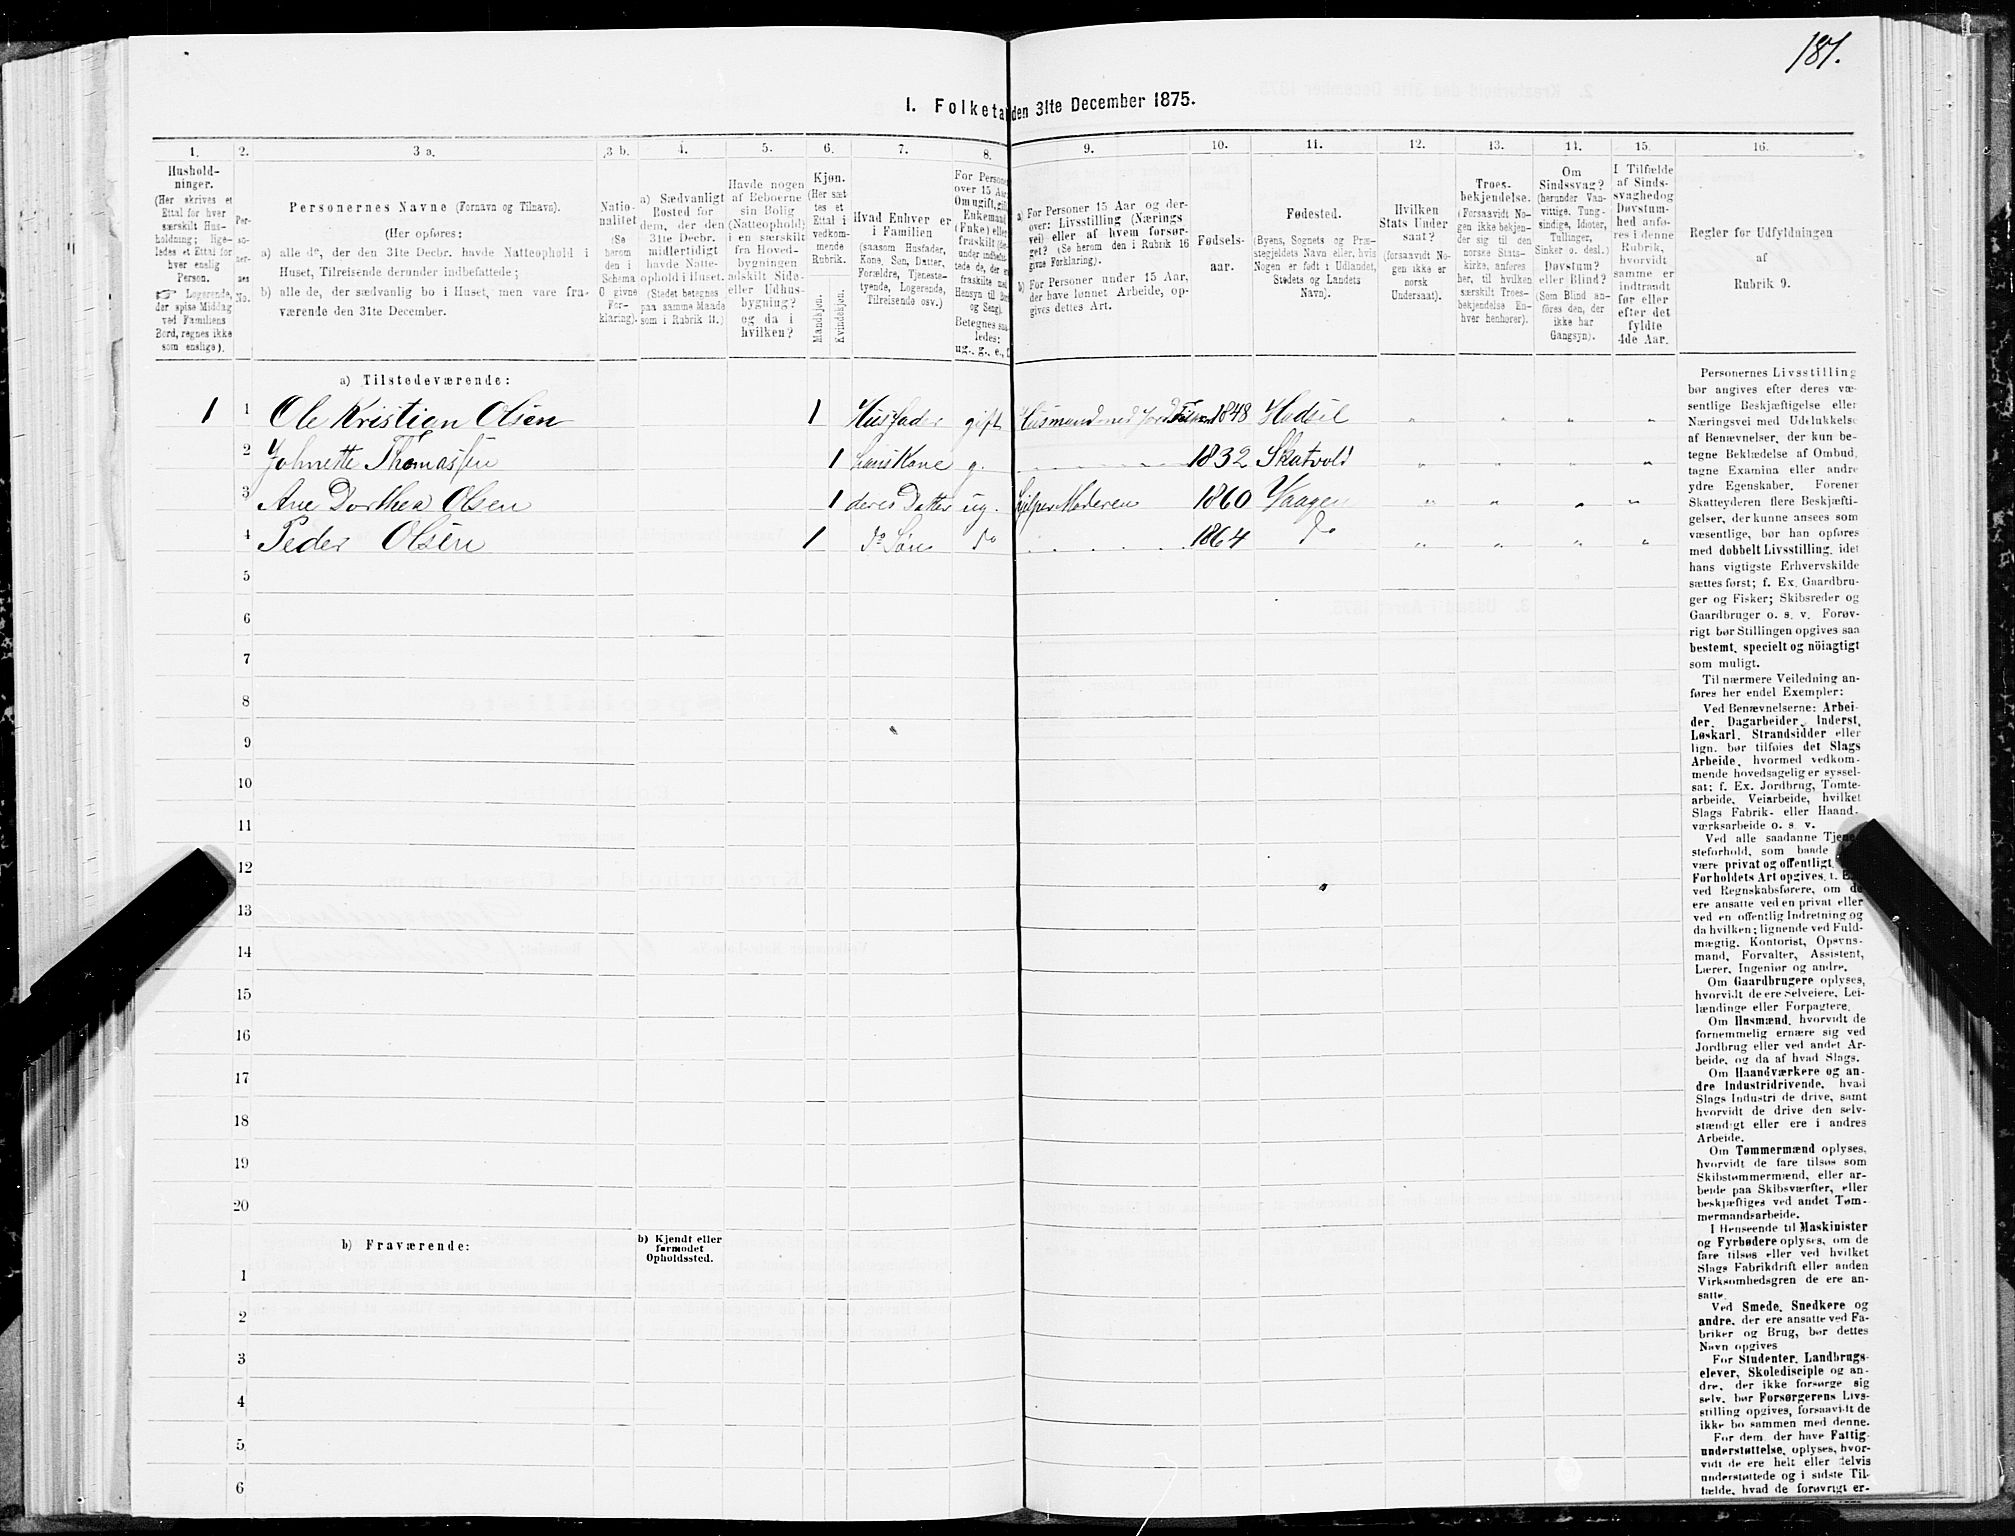 181.
1. Folketa den 31te December 1875.
1. 2. 3 a. 3 b. 4. 5. 6. 7. 8. 9. 10. 11. 12. 13. 14. 15. 16.
Hushold-
ninger.
(Her skrives et
Ettal for hver
særskilt Hus-
holdning; lige-
ledes et Ettal for
hver enslig
Person.
☞ Logerende,
der spise Middag
ved Familiens
Bord, regnes ikke
som enslige).
Per-
so-
ner-
nes
No.
Personernes Navne (Fornavn og Tilnavn).
(Her opføres:
a) alle de, der den 31te Decbr. havde Natteophold i
Huset, Tilreisende derunder indbefattede;
b) alle de, der sædvanlig bo i Huset, men vare fra-
værende den 31te December.
Natio-
nalitet
(Se
herom
den i
Schema
O givne
For-
klaring).
a) Sædvanligt
Bosted for
dem, der den
31te Decbr.
midlertidigt
havde Natte-
ophold i Huset.
(Stedet betegnes
paa samme Maade
som i Rubrik 11.)
Havde nogen
af Beboerne
sin Bolig
(Natteophold)
i en særskilt
fra Hoved-
bygningen
adskilt Side-
eller Udhus-
bygning?
og da i
hvilken?
Kjøn.
(Her sæt-
tes et
Ettal i
vedkom-
mende
Rubrik.
Mandkjøn.
Kvindekjøn.
Hvad Enhver er
i Familien
(saasom Husfader,
Kone, Søn, Datter,
Forældre, Tjeneste-
tyende, Logerende,
Tilreisende osv.)
For Persone
over 15 Aa
Om ugift, gift
Enkemand
(Enke) eller
fraskilt
Betegnes saa
ledes:
ug., g., e., f.
a) For Personer 15 Aar og der-
over: Livsstilling (Nærings
vei) eller af hvem forsør-
get? (Se herom den i Rubrik 16
givne Forklaring).
b) For Personer under 15 Aar,
der have lønnet Arbeide, op-
gives dettes Art.
Fødsels-
aar.
Fødested.
(Byens, Sognets og Præ-
stegjeldets Navn eller, hvis
Nogen er født i Udlandet,
Stedets og Landets
Navn).
Hvilken
Stats Under
saat?
(forsaavidt No-
gen ikke er
norsk
Undersaat).
Troes-
bekjendelse.
(Forsaavidt No-
gen ikke bekjen-
der sig til den
norske Stats-
kirke, anføres
her, til hvilken
særskilt Troes-
bekjendelse En-
hver henhører).
Om
Sindssvag?
(herunder Van-
vittige, Tung-
sindige, Idioter,
Tullinger,
Sinker o. desl.)
Døvstum?
eller Blind?
(Som Blind an-
føres den, der
ikke har
Gangsyn).
I Tilfælde
af Sinds-
svaghedog
Døvstum-
hed anfø-
res i denne
Rubrik,
hvorvidt
samme er
indtraadt
før eller
efter det
fyldte
4de Aar.
Regler for Udfyldningen
af
Rubrik 9.
a) Tilstedeværende:
1 1 Ole Kristian Olsen 1 Husfader gift Husmand med Jord 1848 Hadsel „ „ „ „
2 Johnette Thomassen 1 hans Kone g. 1832 Skatvold „ „ „ „
3 Ane Dorthea Olsen 1 deres Datter ug. hjelper Moderen 1860 Vaagen „ „ „ „
4 Peder Olsen 1 do Søn do 1864 do „ „ „ „
5
6
7
8
9
10
11
12
13
14
15
16
17
18
19
20
b) Fraværende:
b) Kjendt eller
formodet
Opholdssted.
1
2
3
4
5
6
Personernes Livsstilling
bør angives efter deres væ-
sentlige Beskjæftigelse eller
Næringsvei med Udelukkelse
af Benævnelser, der kun be-
tegne Beklædelse af Ombud,
tagne Examina eller andre
ydre Egenskaber. Forener
Skatteyderen flere Beskjæfti-
gelser, der kunne ansees som
væsentlige, bør han opføres
med dobbelt Livsstilling, idet
hans vigtigste Erhvervskilde
sættes først; f. Ex. Gaardbru-
ger og Fisker; Skibsreder og
Gaardbruger o. s. v. Forøv-
rigt bør Stillingen opgives saa
bestemt, specielt og nöiagtigt
som muligt.
Til nærmere Veiledning an-
føres her endel Exempler:
Ved Benævnelserne: Arbei-
der, Dagarbeider, Inderst,
Løskarl, Strandsidder eller
lign. bør tilføies det Slags
Arbeide, hvormed vedkom-
mende hovedsagelig er syssel-
sat; f. Ex. Jordbrug, Tomte-
arbeide, Veiarbeide, hvilket
Slags Fabrik- eller Haand-
værksarbeide o. s. v.
Ved alle saadanne Tjene
steforhold, som baade
være privat og offentligt,
Forholdets Art opgives, f. E
ved Regnskabsførere, om de
ere ansatte ved en privat eller
ved en offentlig Indretning og
da hvilken; lignende ved Fuld-
mægtig, Kontorist, Opsyns-
mand, Forvalter, Assistent,
Lærer, Ingeniør og andre.
Om Gaardbrugere oplyses,
hvorvidt de ere Selveiere, Lei-
lændinge eller Forpagtere.
Om Husmænd, hvorvidt de
fornemmelig ernære sig ved
Jordbrug eller ved andet Ar-
beide, og da af hvad Slags.
Om Haandværkere og an-
dre Industridrivende, hvad
Slags Industri de drive, samt
hvorvidt de drive den selv-
stændigt eller ere i andres
Arbeide.
Om Tømmermænd oplyses,
hvorvidt de fare tilsøs som
Skibstømmermænd, eller ar-
beide paa Skibsværfter, eller
beskjæftiges ved andet Tøm-
mermandsarbeide.
I Henseende til Maskinister
og Fyrbødere oplyses, om de
fare tilsøs eller ved hvilket
Slags Fabrikdrift eller anden
Virksomhedsgren de ere an-
satte.
Ved Smede, Snedkere og
andre, der ere ansatte ved Fa-
briker og Brug, bør dettes
Navn opgives
For Studenter, Landbrugs-
elever, Skoledisciple og an-
dre, der ikke forsørge sig
selv, bør Forsørgerens Livs-
stilling opgives, forsaavidt de
ikke bo sammen med denne.
For dem, der have Fattig-
understøttelse, oplyses, hvor-
vidt de ere helt eller delvis
understøttede og i sidste Til-
fælde, hvad de forøvrigt er-